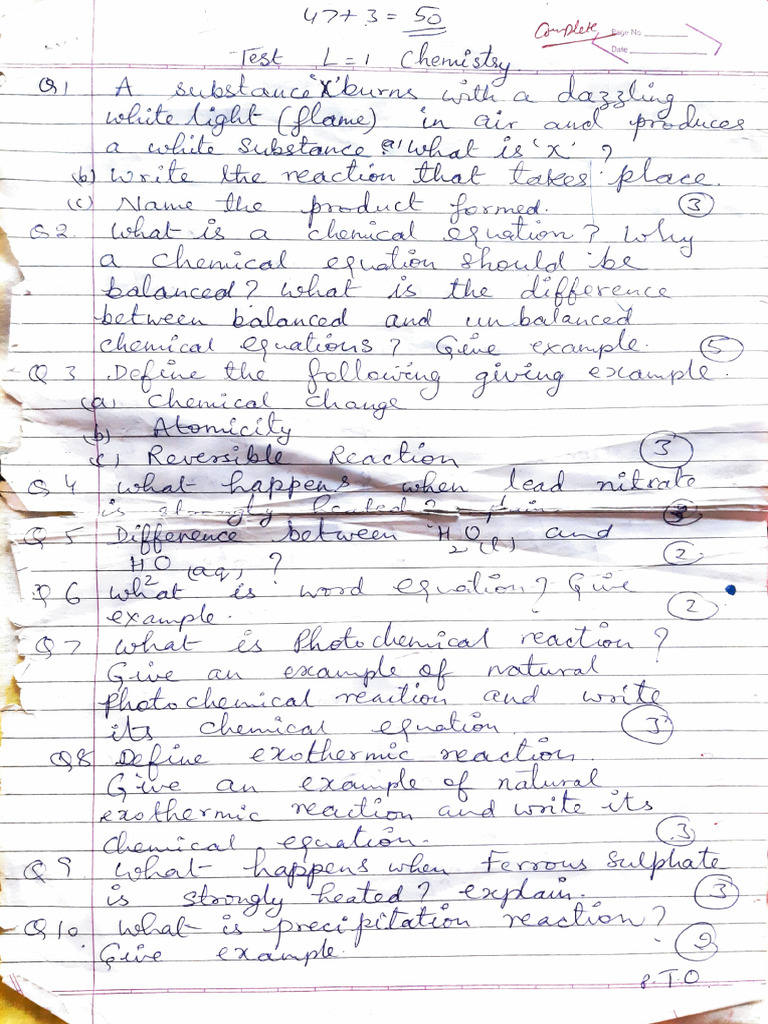 47+3 = 50
Complete
Page No.
Date
Test L=1 Chemistry
Q1 A substance 'X' burns with a dazzling
white light (flame) in air and produces
a white substance (a) What is 'x' ?
(b) Write the reaction that takes place.
(c) Name the product formed. 3
Q2. What is a chemical equation? Why
a chemical equation should be
balanced? What is the difference
between balanced and unbalanced
chemical equations? Give example. 5
Q3 Define the following giving example.
(a) Chemical change
(b) Atomicity
(c) Reversible Reaction 3
Q4 What happens when lead nitrate
is strongly heated? explain 3
Q5 Difference between H2O(l) and
H2O(aq) ? 2
Q6 What is word equation? Give
example. 2
Q7 What is Photochemical reaction?
Give an example of natural
photochemical reaction and write
its chemical equation. 3
Q8 Define exothermic reaction.
Give an example of natural
exothermic reaction and write its
chemical equation. 3
Q9 What happens when Ferrous Sulphate
is strongly heated? explain. 3
Q10 What is precipitation reaction?
Give example. 2
P.T.O